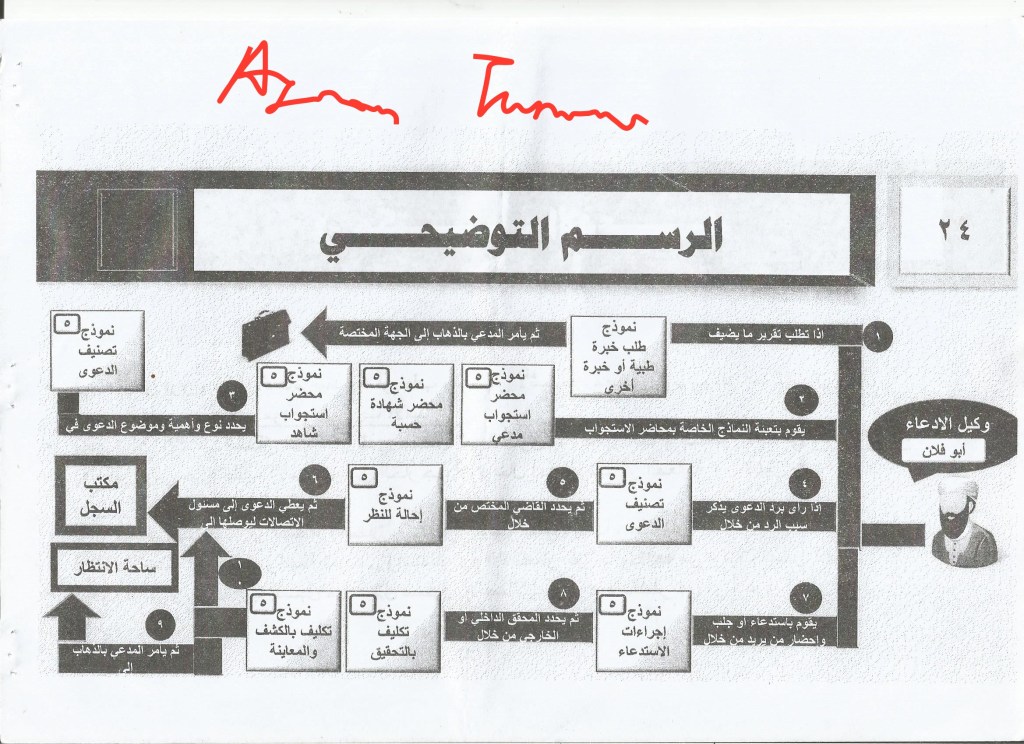 Aymenn
٢٤
الرسم التوضيحي
١
اذا تطلب تقرير ما يضيف
نموذج
طلب خبرة
طبية أو خبرة
أخرى
ثم يأمر المدعي بالذهاب إلى الجهة المختصة
وكيل الادعاء
أبو فلان
٢
يقوم بتعبئة النماذج الخاصة بمحاضر الاستجواب
٥
نموذج
محضر
استجواب
مدعي
٥
نموذج
محضر شهادة
حسبة
٥
نموذج
محضر
استجواب
شاهد
٣
يحدد نوع وأهمية وموضوع الدعوى في
٥
نموذج
تصنيف
الدعوى
٤
إذا رأى برد الدعوى يذكر
سبب الرد من خلال
٥
نموذج
تصنيف
الدعوى
٥
ثم يحدد القاضي المختص من
خلال
٥
نموذج
إحالة للنظر
٦
ثم يعطي الدعوى إلى مسئول
الاتصالات ليوصلها إلى
مكتب
السجل
٧
يقوم باستدعاء أو جلب
وإحضار من يريد من خلال
٥
نموذج
إجراءات
الاستدعاء
٨
ثم يحدد المحقق الداخلي أو
الخارجي من خلال
٥
نموذج
تكليف
بالتحقيق
٥
نموذج
تكليف بالكشف
والمعاينة
٩
ثم يأمر المدعي بالذهاب
إلى
ساحة الانتظار
١٠